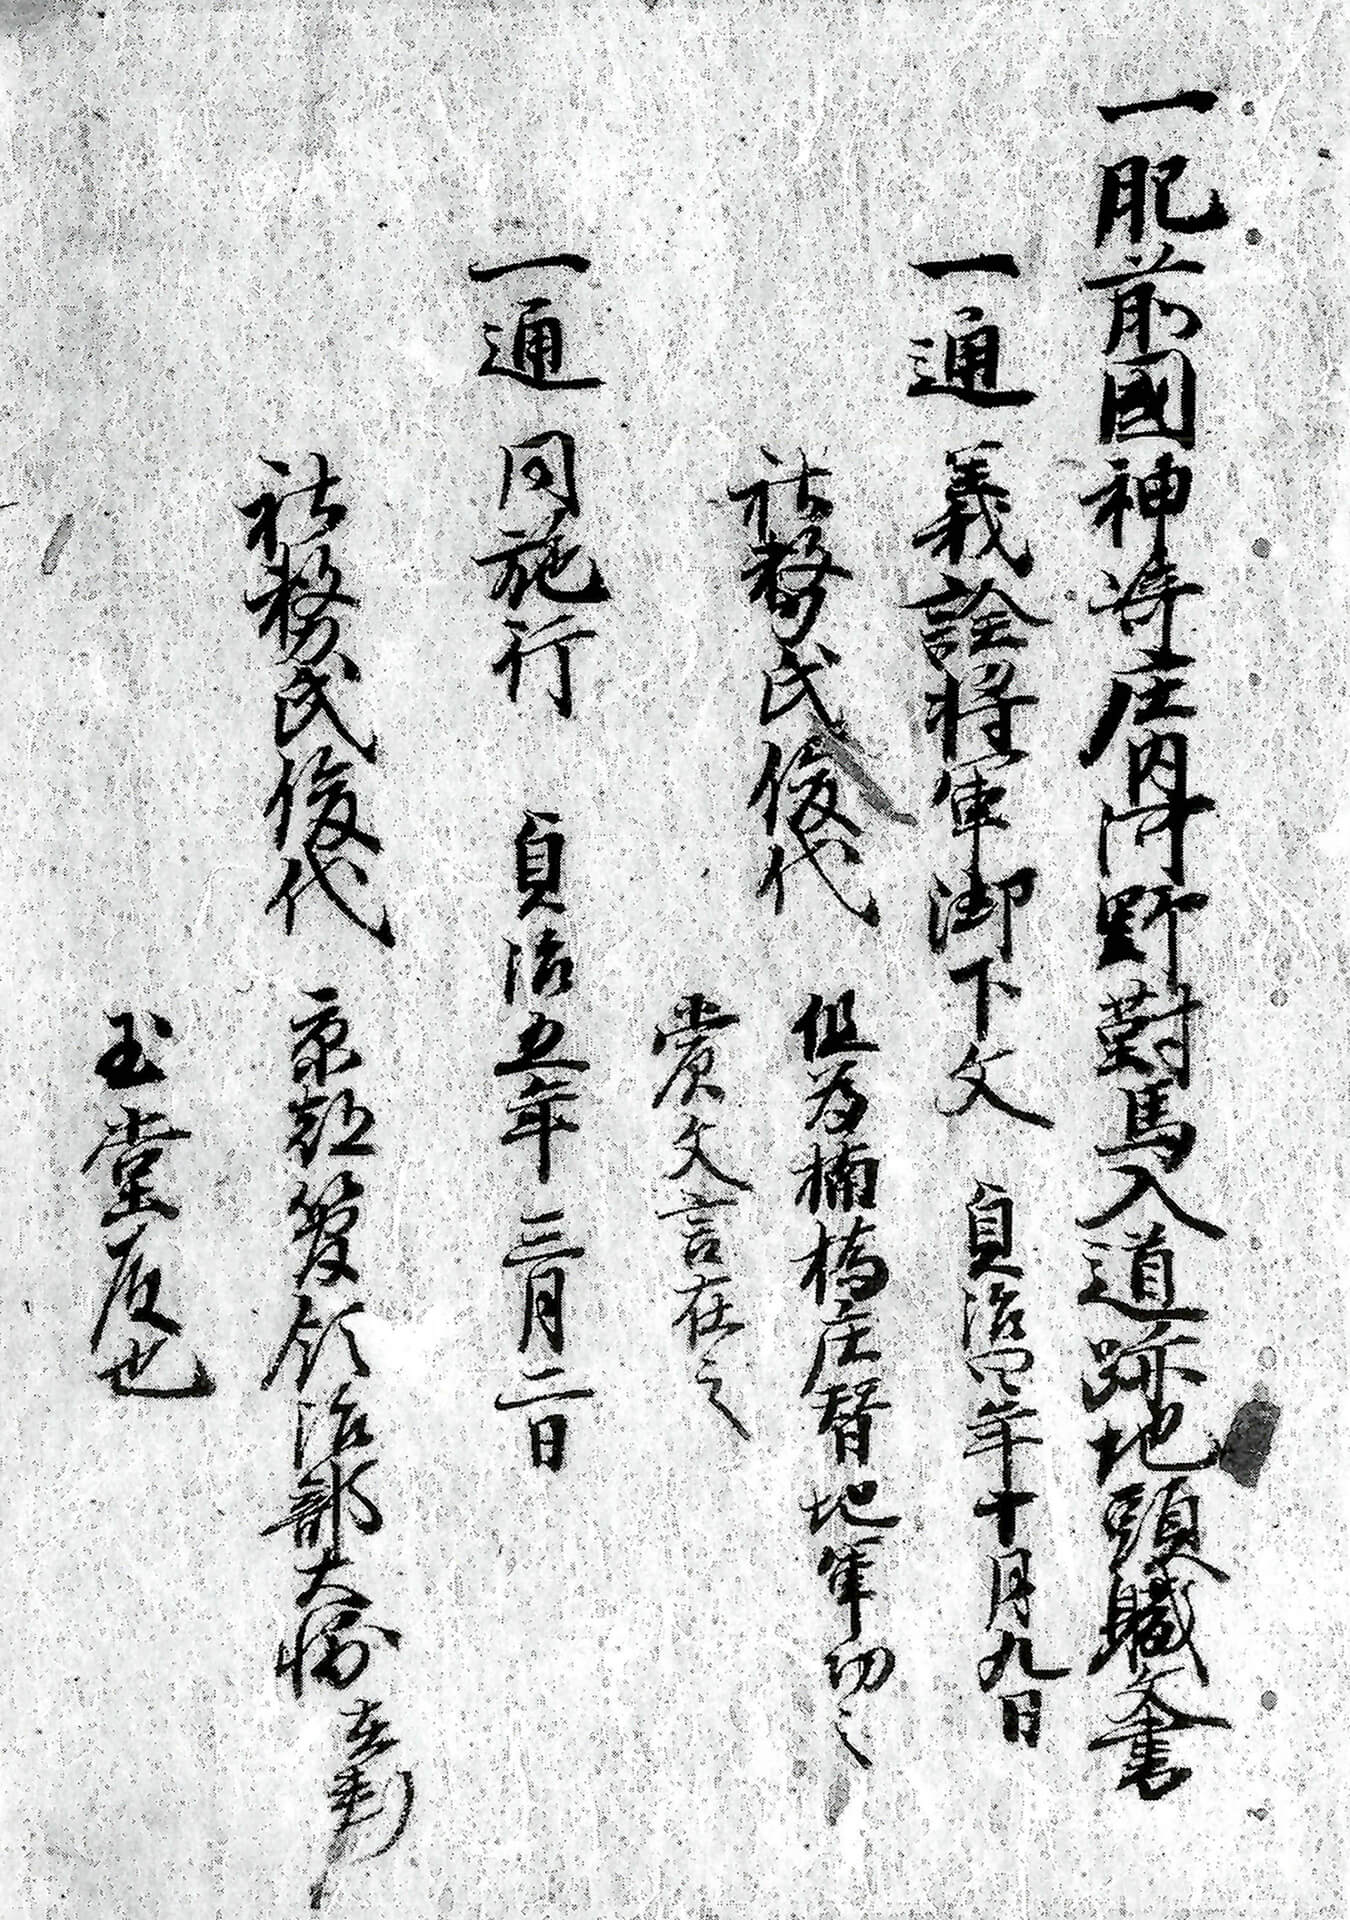 一肥前國神崎庄内河野對馬入道跡地頭職文書
一通 義詮将軍御下文 貞治四年十月九日
社務氏俊代 但為楠橋庄替地軍功之
賞文言在之
一通 同施行 貞治五年三月二日
社務氏俊代 京都管領治部大輔在判
玉堂殿也